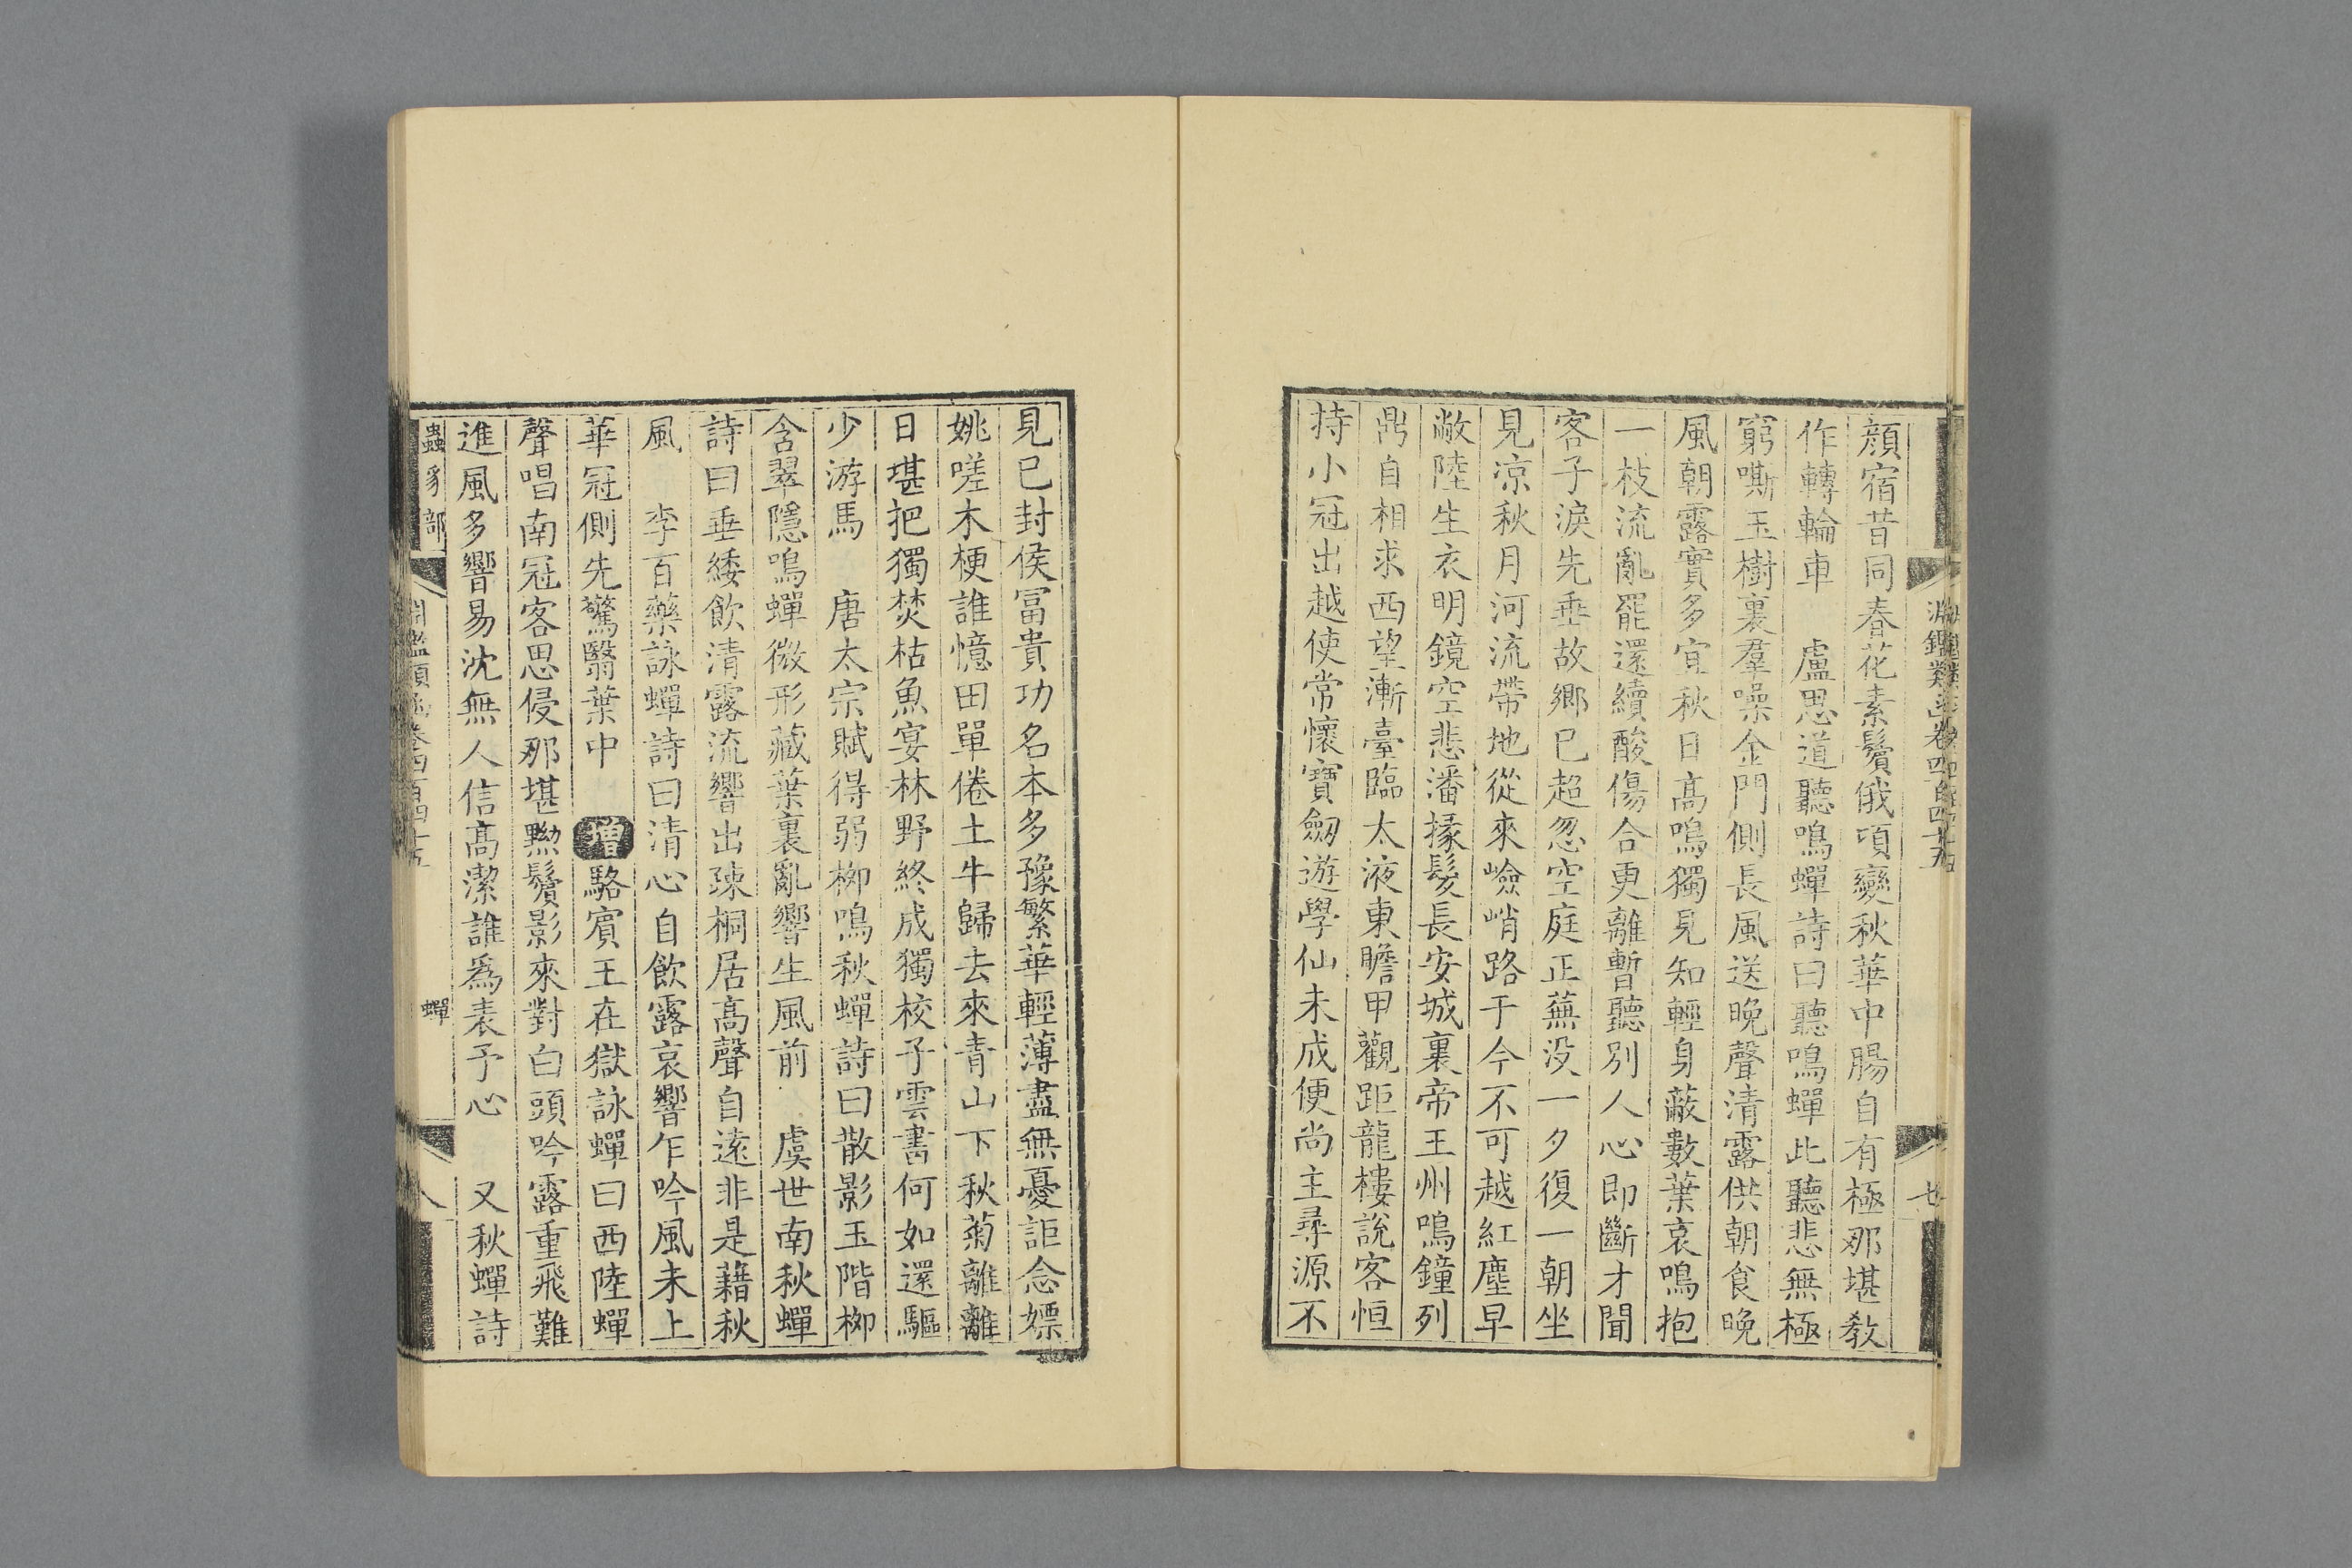 顔宿昔同春花素鬢俄項變秋華中腸自有極那堪敎
作轉輪車　盧思道聽鳴蟬詩曰聽鳴蟬此聽悲無極
窮嘶玉樹裏羣噪金門側長風送晚聲清露供朝食晚
風朝露實多宜秋日髙鳴獨見知輕身蔽數葉哀鳴抱
一枝流亂罷還續酸傷合更離暫聽別人心即斷才聞
客子淚先垂故鄉已超忽空庭正蕪没一夕復一朝坐
見凉秋月河流帶地從來嶮峭路于今不可越紅塵早
敝陸生衣明鏡空悲潘掾髮長安城裏帝王州鳴鐘列
鼎自相求西望漸臺臨太液東瞻甲觀距龍樓說客恒
持小冠出越使常懷寶劒遊學仙未成便尚主尋源不
見已封侯冨貴功名本多豫繁華輕薄盡無憂詎念嫖
姚嗟木梗誰憶田單倦土牛歸去來青山下秋菊離離
日堪把獨焚枯魚宴林野終成獨校子雲書何如還驅
少游馬　唐太宗賦得弱柳鳴秋蟬詩曰散影玉階栁
含翠隱鳴蟬微形藏葉裏亂響生風前　虞世南秋蟬
詩曰垂緌飲清露流響出疎桐居髙聲自逺非是藉秋
風　李百藥詠蟬詩曰清心自飲露哀響乍吟風未上
華冠側先驚翳葉中　增駱賓王在獄詠蟬曰西陸蟬
聲唱南冠客思侵那堪黝鬢影來對白頭吟露重飛難
進風多響易沈無人信髙潔誰爲表予心　又秋蟬詩
蟲豸部　淵鑑類函卷四百四十五　蟬　八